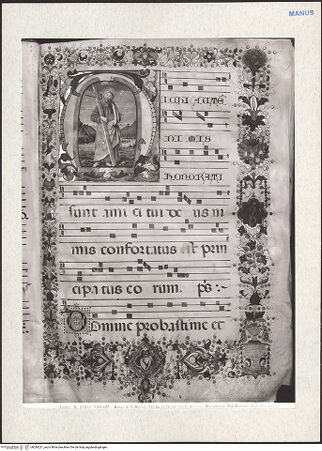 MANUS
ICHI AUTĒ
NI MIS
HONORATI
sunt ami ci tui de us ni
mis confortatus est prin
cipatus eo rum. ps:
Domine probastime et